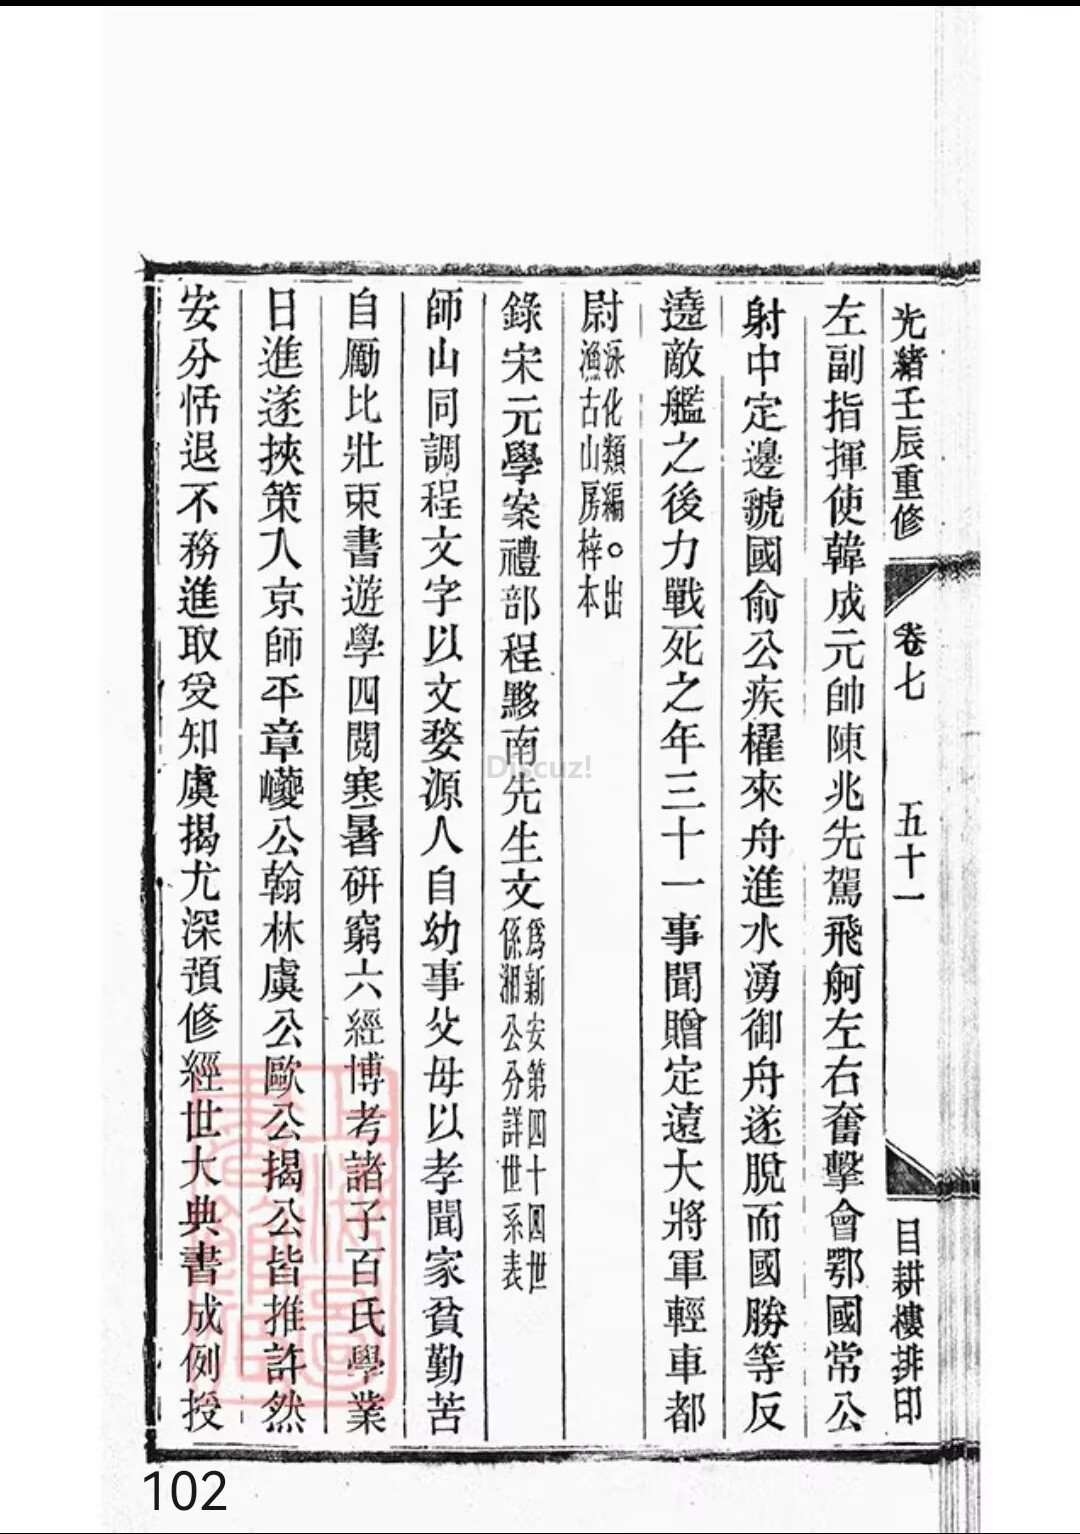 光緒壬辰重修
卷七
五十一
目耕樓排印
左副指揮使韓成元帥陳兆先駕飛舸左右奮擊會鄂國常公
射中定邊虢國俞公疾櫂來舟進水湧御舟遂脫而國勝等反
遶敵艦之後力戰死之年三十一事聞贈定遠大將軍輕車都
尉泳化類編○出
漁古山房梓本
錄宋元學案禮部程黟南先生文爲新安第四十四世
係湘公分詳世系表
師山同調程文字以文婺源人自幼事父母以孝聞家貧勤苦
自勵比壯束書遊學四閱寒暑研窮六經博考諸子百氏學業
日進遂挾策入京師平章巙公翰林虞公歐公揭公皆推許然
安分恬退不務進取受知虞揭尤深預修經世大典書成例授
Discuz!
102